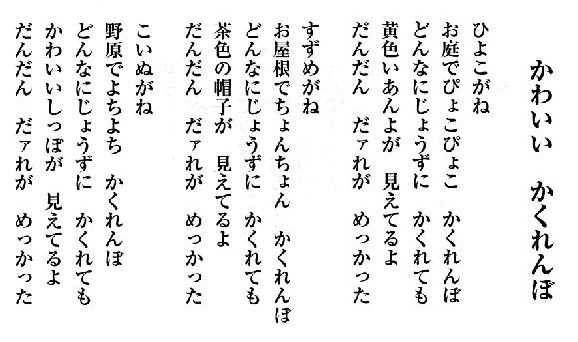 かわいい　かくれんぼ
ひよこがね
お庭でぴょこぴょこ　かくれんぼ
どんなにじょうずに　かくれても
黄色いあんよが　見えてるよ
だんだん　だァれが　めっかった
すずめがね
お屋根でちょんちょん　かくれんぼ
どんなにじょうずに　かくれても
茶色の帽子が　見えてるよ
だんだん　だァれが　めっかった
こいぬがね
野原でよちよち　かくれんぼ
どんなにじょうずに　かくれても
かわいいしっぽが　見えてるよ
だんだん　だァれが　めっかった